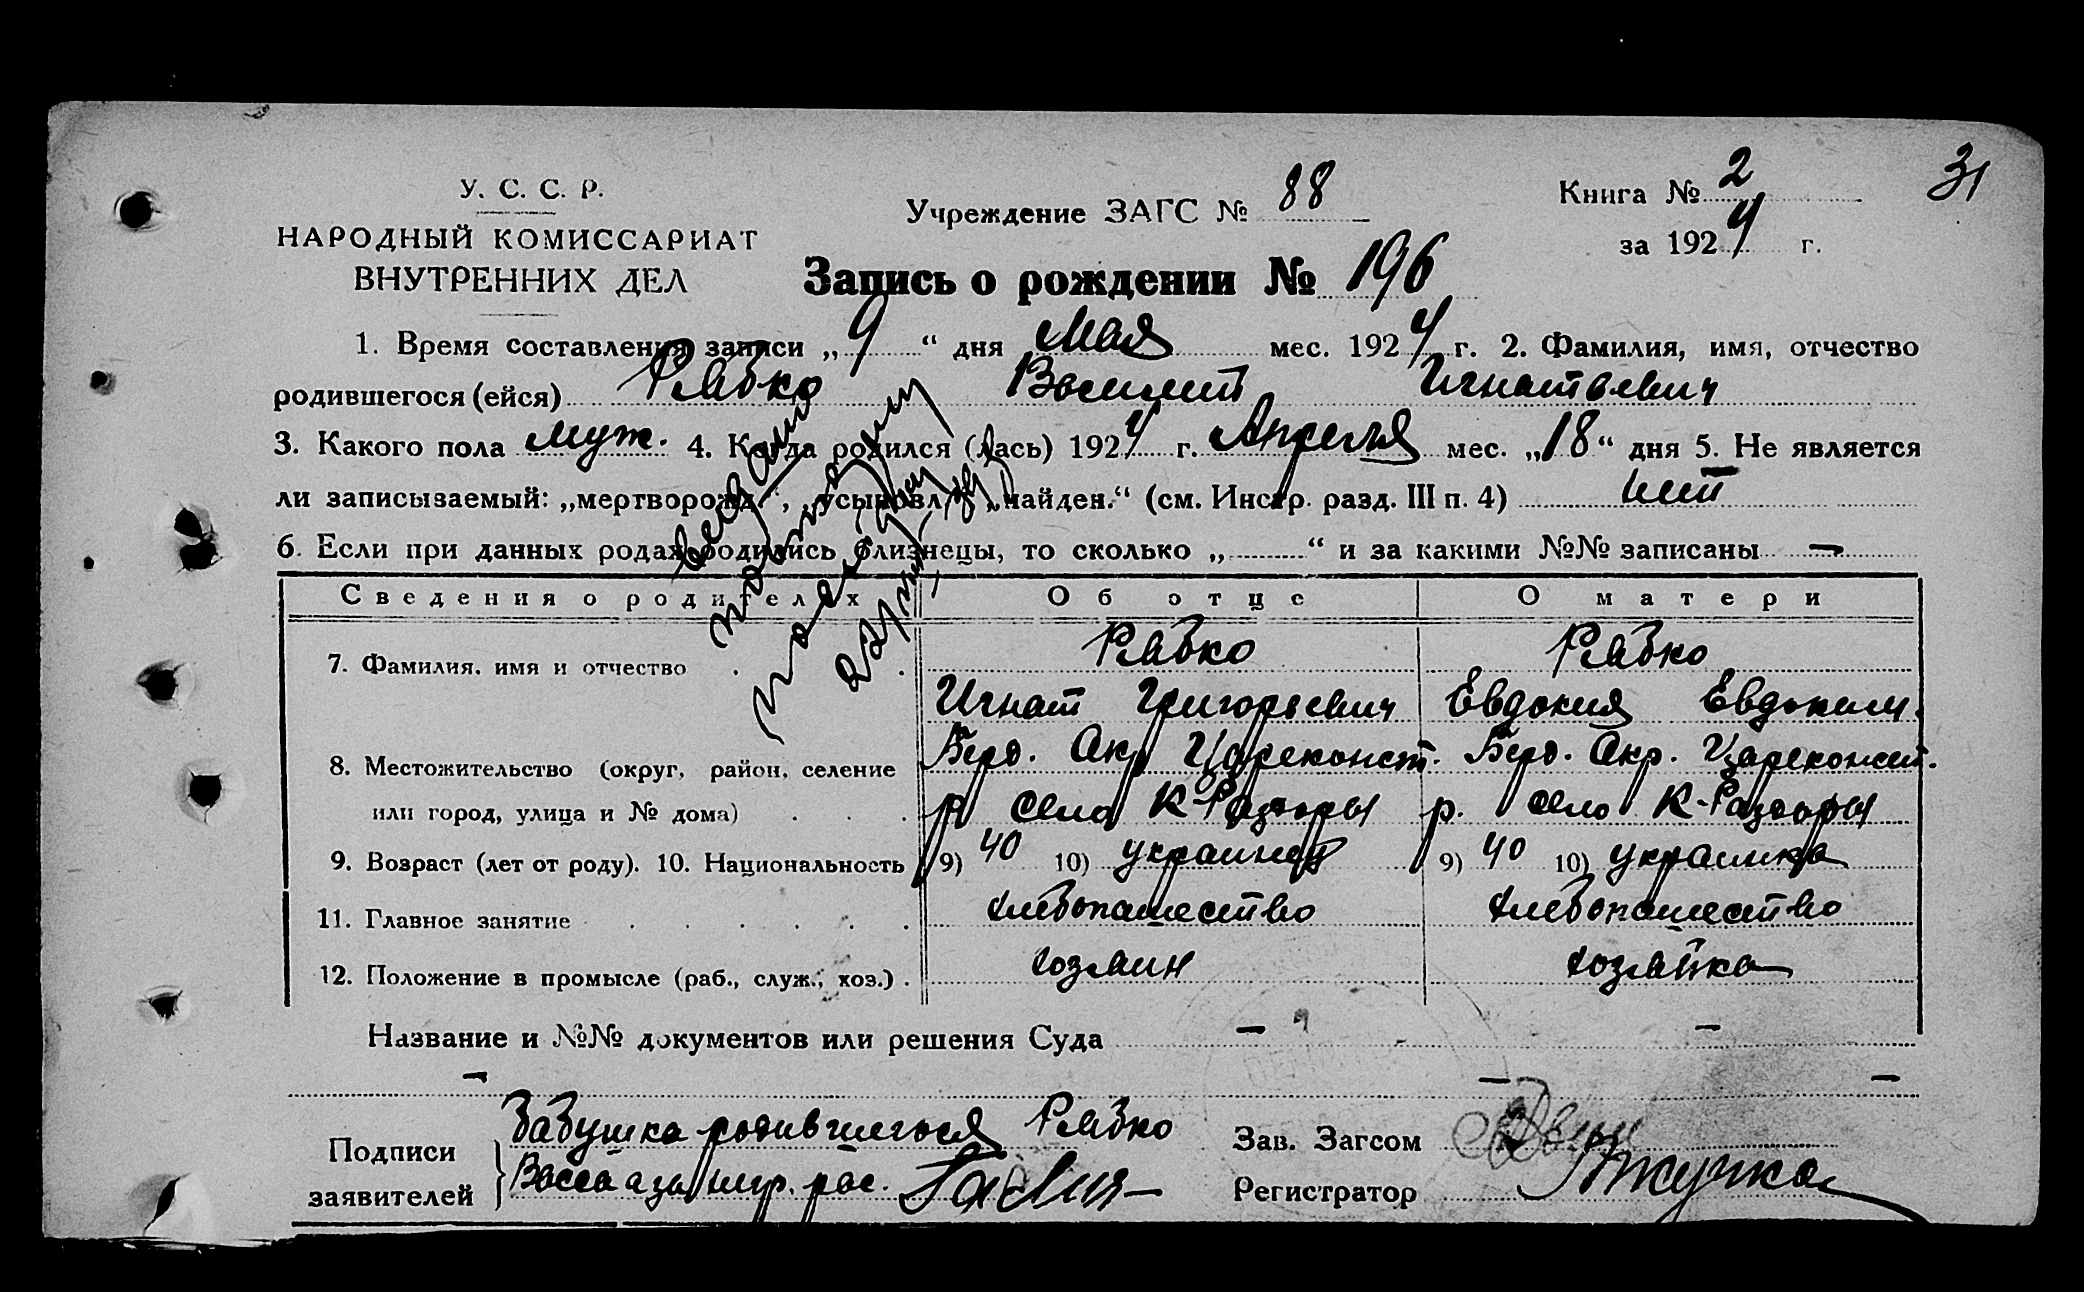 У. С. С. Р.
НАРОДНЫЙ КОМИССАРИАТ
ВНУТРЕННИХ ДЕЛ
Учреждение ЗАГС № 88
Книга № 2
31
за 1924 г.
Запись о рождении № 196
1. Время составления записи „9“ дня Мая мес. 1924 г. 2. Фамилия, имя, отчество
родившегося (ейся) Рябко Игнатьевич
3. Какого пола муж. 4. Когда родился (лась) 1924 г. Апреля мес. „18“ дня 5. Не является
ли записываемый: „мертворожд.“, „усыновл.“, „найден.“ (см. Инстр. разд. III п. 4) нет
6. Если при данных родах родились близнецы, то сколько „ “ и за какими №№ записаны —
Сведения о родителях Об отце О матери
7. Фамилия, имя и отчество Рябко Рябко
Игнат Григорьевич Евдокия Евдоким.
8. Местожительство (округ, район, селение Берд. Окр. Цареконст. Берд. Окр. Цареконст.
или город, улица и № дома) р. село К-Раздоры р. село К-Раздоры
9. Возраст (лет от роду). 10. Национальность 9) 40 10) украинец 9) 40 10) украинка
11. Главное занятие хлебопашество хлебопашество
12. Положение в промысле (раб., служ., хоз.) хозяин хозяйка
Название и №№ документов или решения Суда — —
— — —
Подписи заявителей
Бабушка родившегося Рябко
Васса а за негр. рас.
Зав. Загсом
Регистратор